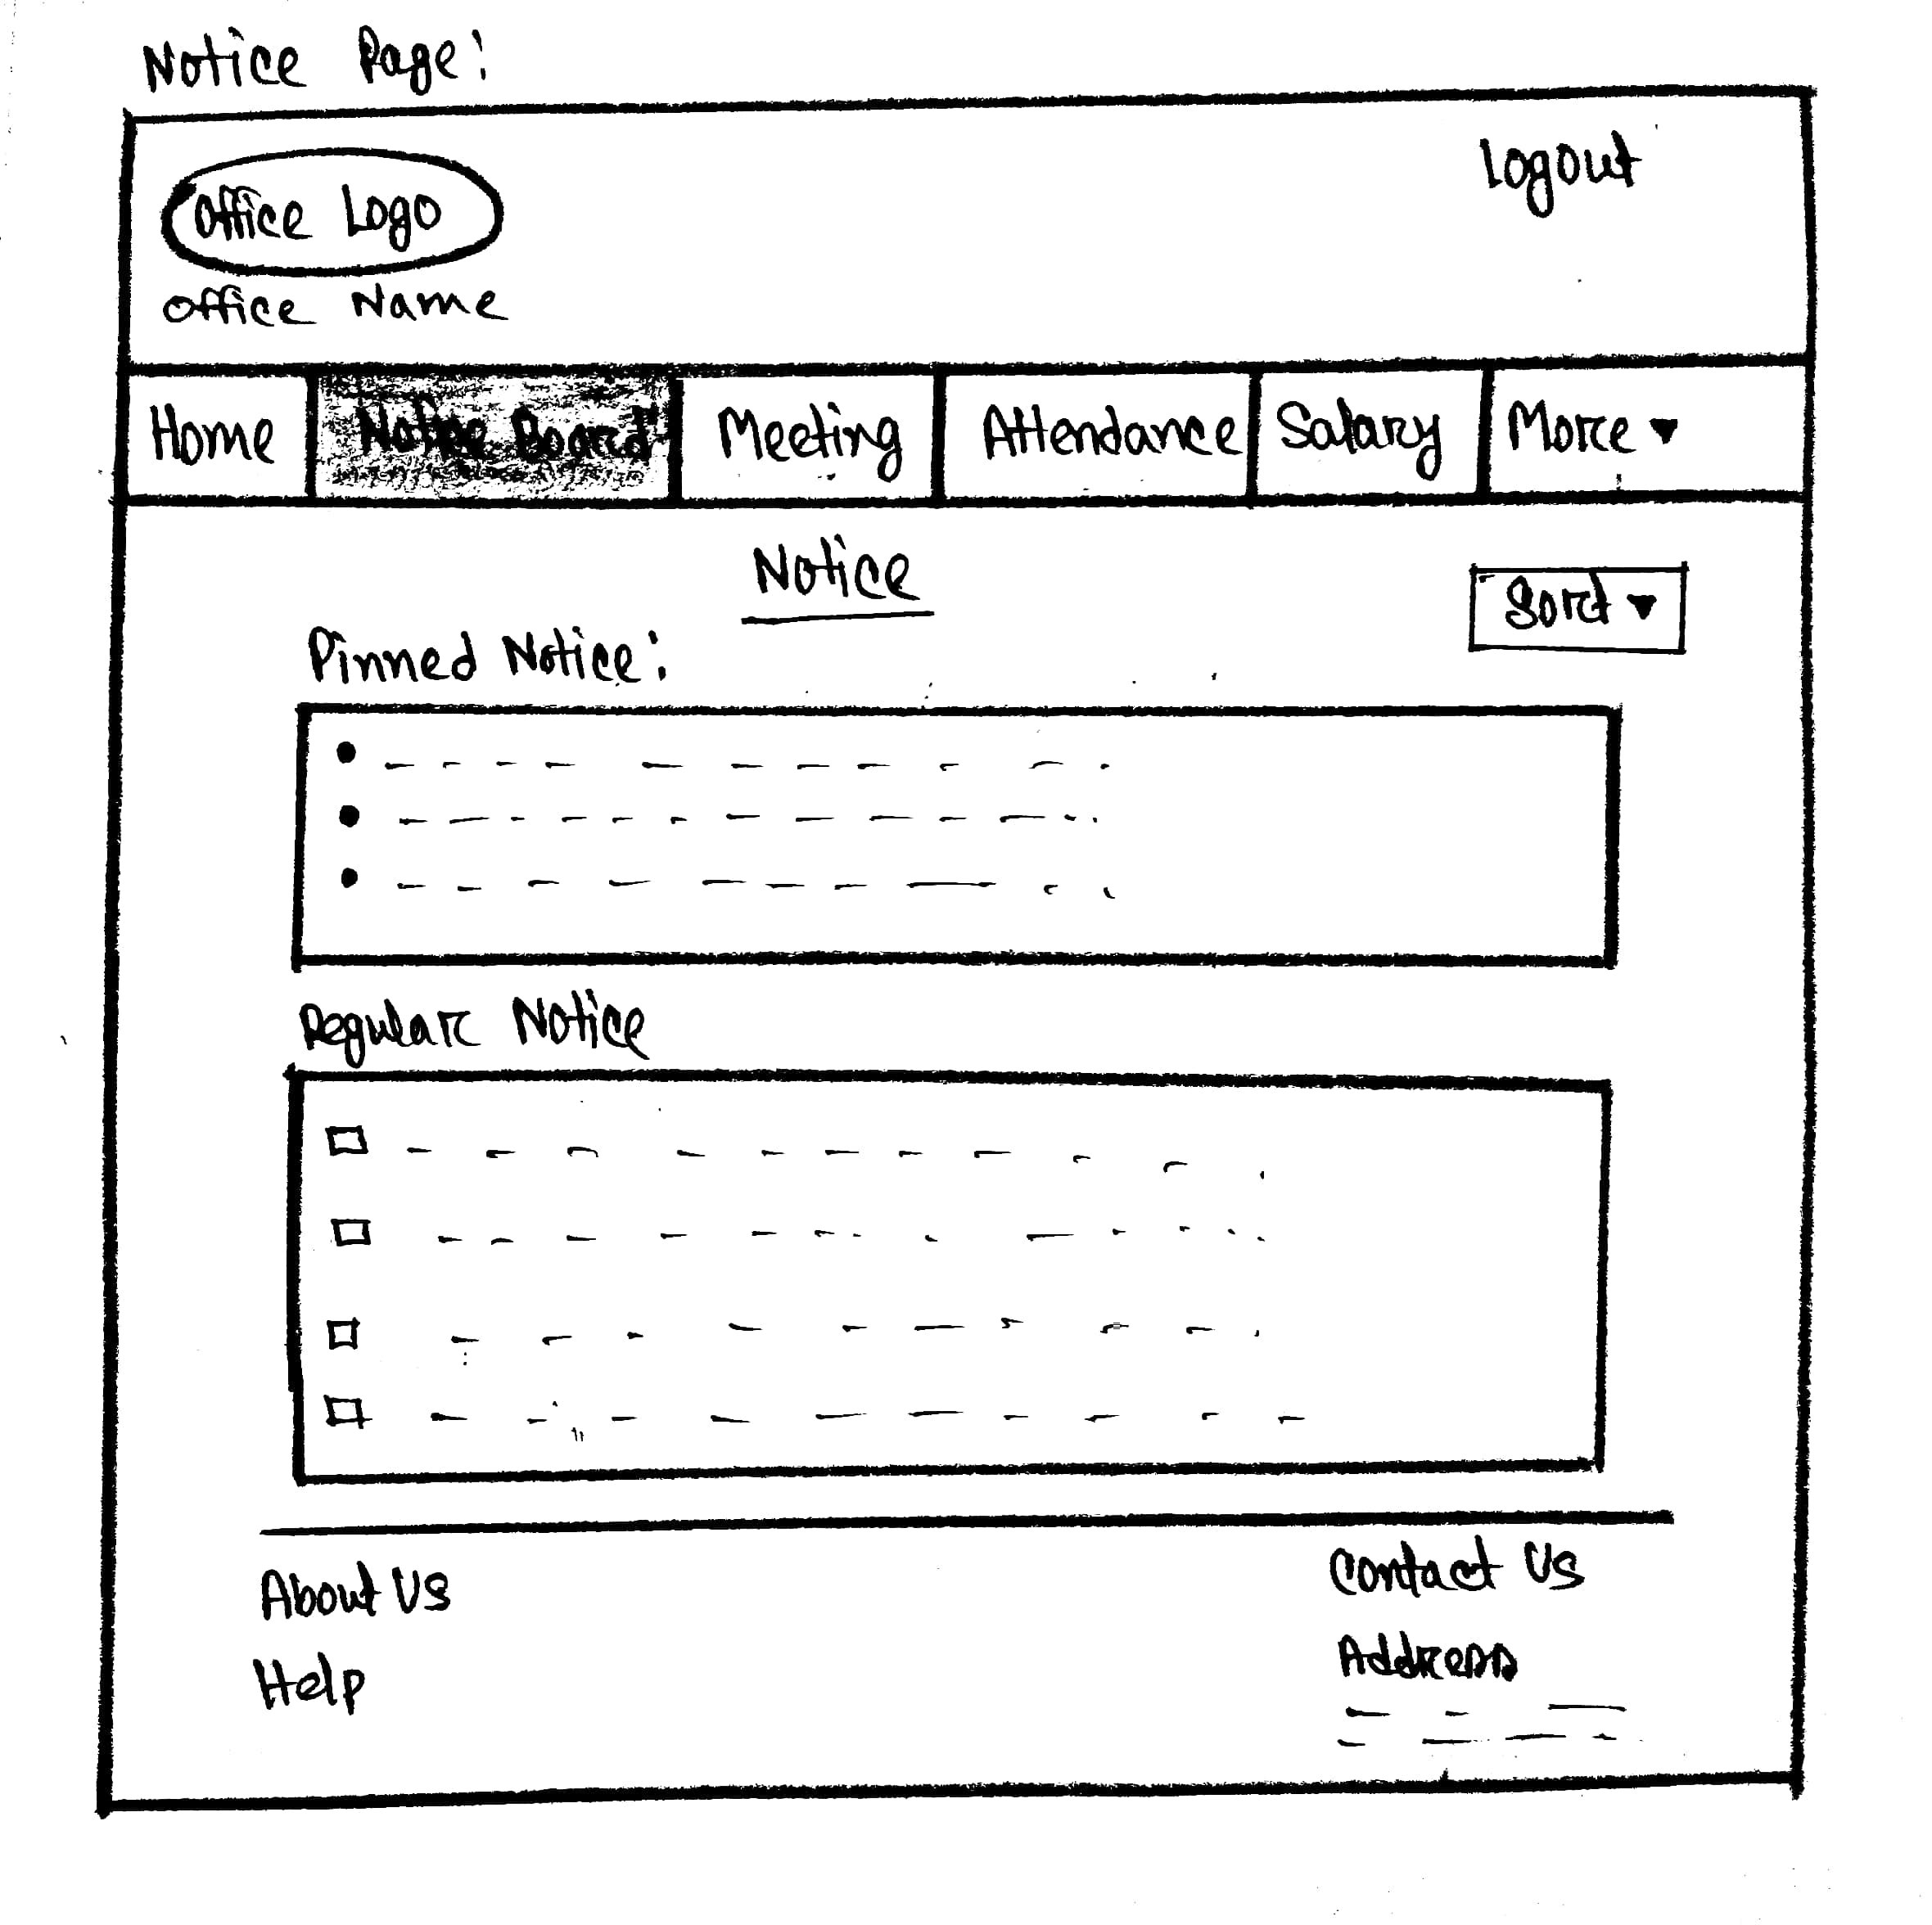 Notice Page:
Logout
Office Logo
Office Name
Home Notice Board Meeting Attendance Salary More ▾
Notice
Sort ▾
Pinned Notice:
Regular Notice
About Us
Contact Us
Help
Address